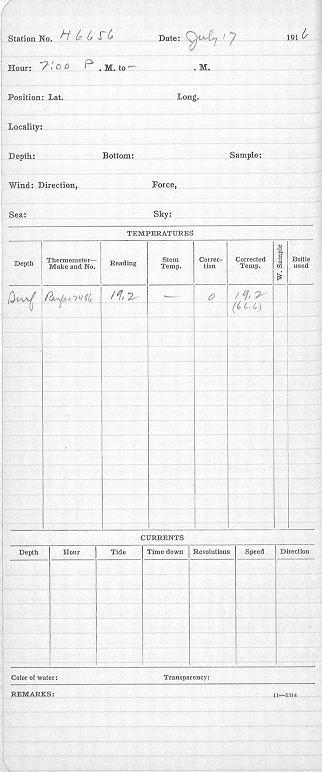 Station No. H6656 Date: July 17 1916
Hour: 7:00 P . M. to — . M.
Position: Lat. Long.
Locality:
Depth: Bottom: Sample:
Wind: Direction, Force,
Sea: Sky:
TEMPERATURES
Depth Thermometer— Make and No. Reading Stem Temp. Correc- tion Corrected Temp. W. Sample Bottle used
Surf 19.2 — 0 19.2
(66.6)
CURRENTS
Depth Hour Tide Time down Revolutions Speed Direction
Color of water: Transparency:
REMARKS: 11—5314